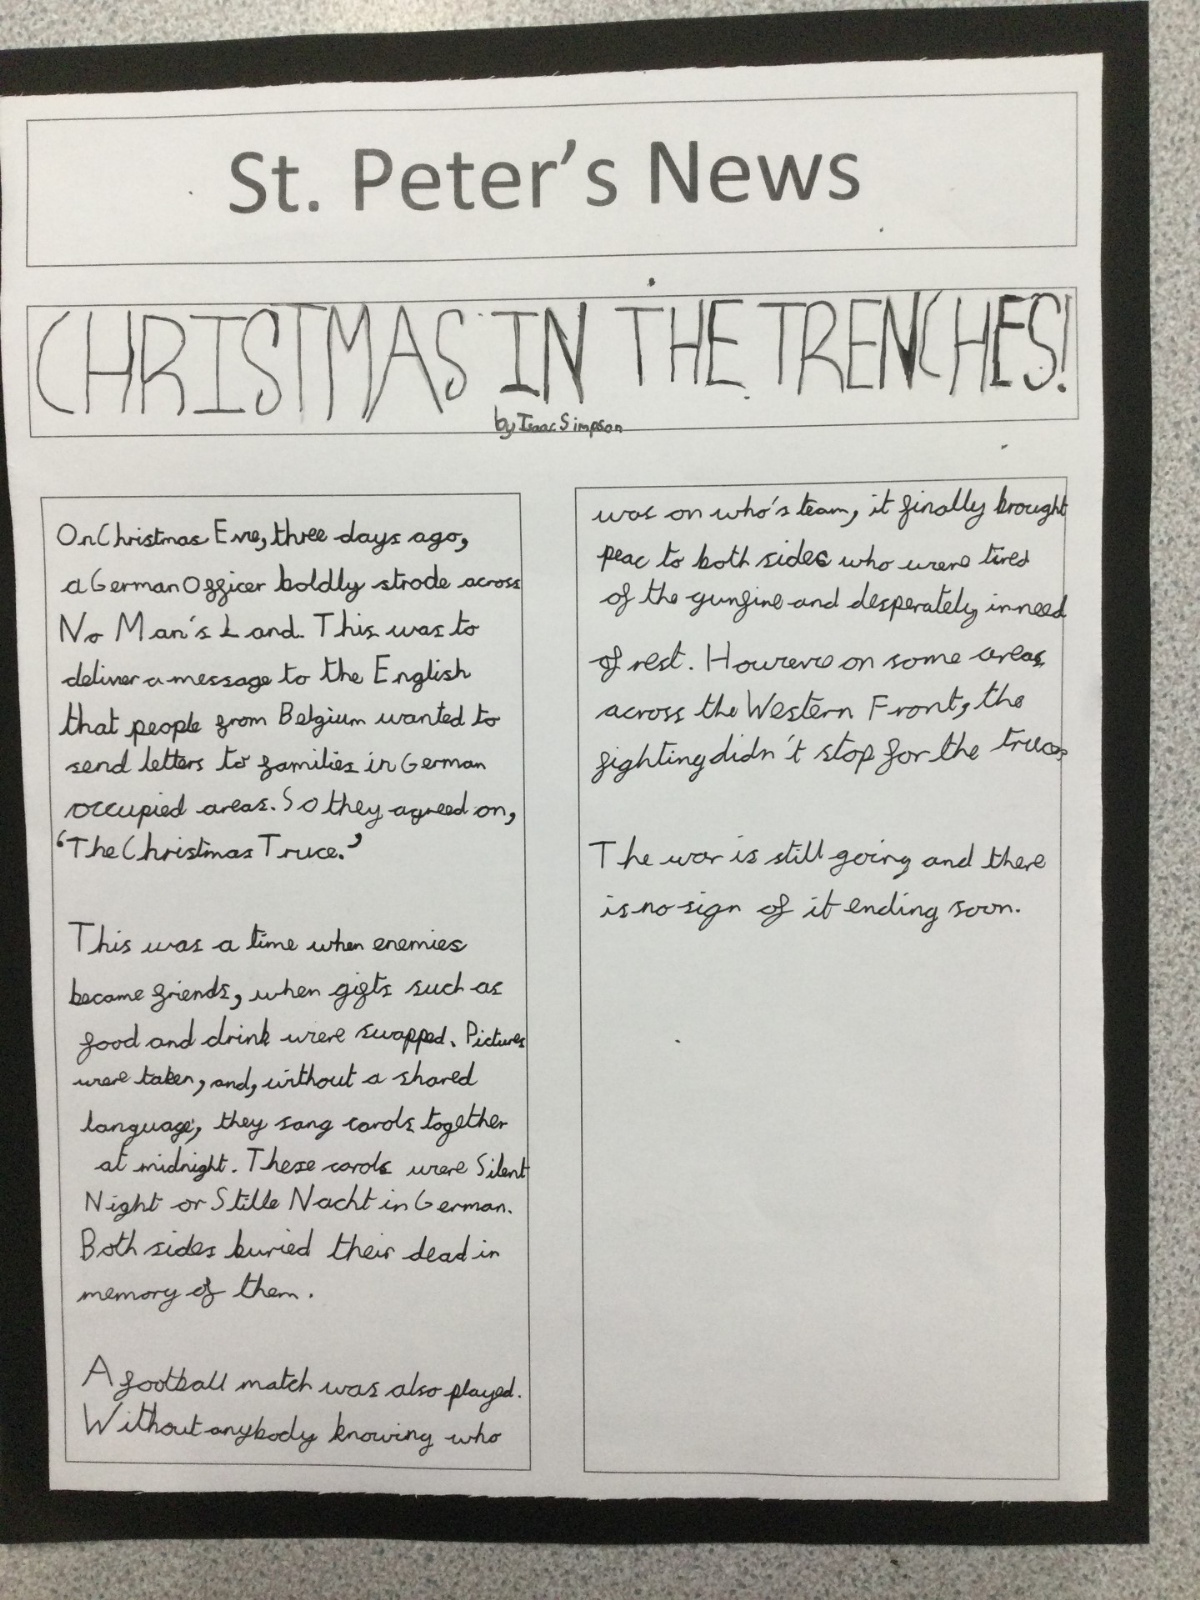 St. Peter's News
CHRISTMAS IN THE TRENCHES!
by Isaac Simpson
On Christmas Eve, three days ago,
a German Officer boldly strode across
No Man's Land. This was to
deliver a message to the English
that people from Belgium wanted to
send letters to families in German
occupied areas. So they agreed on,
'The Christmas Truce.'
This was a time when enemies
became friends, when gifts such as
food and drink were swapped. Pictures
were taken, and, without a shared
language, they sang carols together
at midnight. These carols were Silent
Night or Stille Nacht in German.
Both sides buried their dead in
memory of them.
A football match was also played.
Without anybody knowing who
was on who's team, it finally brought
peac to both sides who were tired
of the gunfire and desperately in need
of rest. However on some areas
across the Western Front, the
fighting didn't stop for the truce.
The war is still going and there
is no sign of it ending soon.